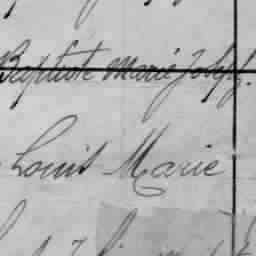 Baptiste Marie Joseph.
Louis Marie